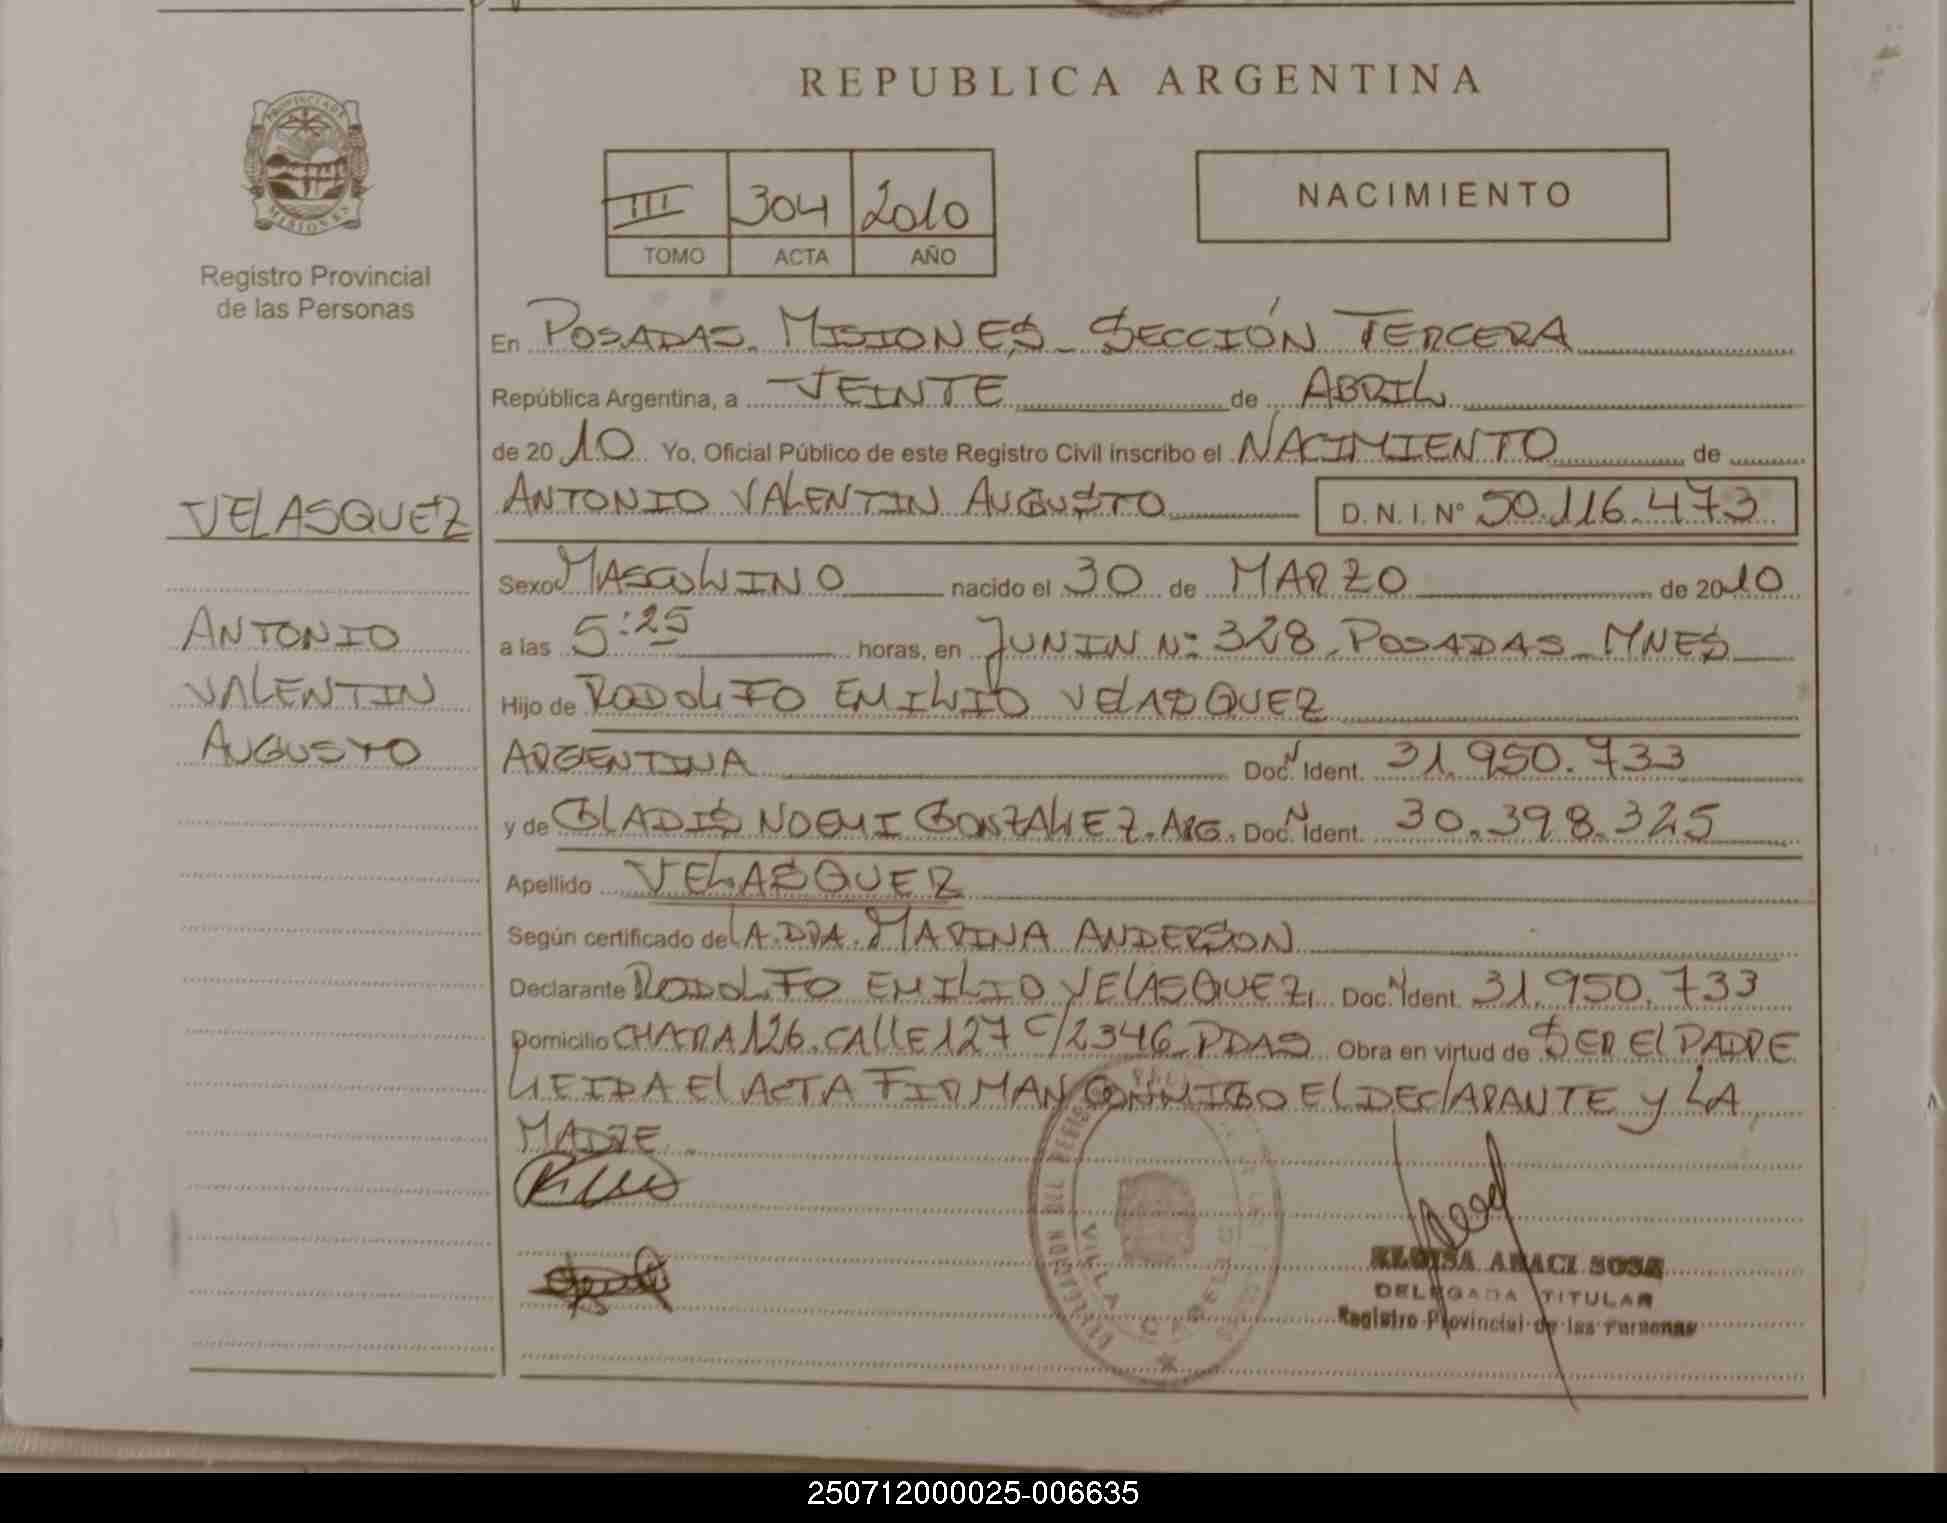 REPUBLICA ARGENTINA
PROVINCIA DE
MISIONES
Registro Provincial
de las Personas
III 304 2010
TOMO ACTA AÑO
NACIMIENTO
En POSADAS. MISIONES - SECCIÓN TERCERA
República Argentina, a VEINTE de ABRIL
de 2010 Yo, Oficial Público de este Registro Civil inscribo el NACIMIENTO de
VELASQUEZ
ANTONIO VALENTIN AUGUSTO D.N.I. Nº 50.116.473
Sexo MASCULINO nacido el 30 de MARZO de 2010
ANTONIO
VALENTIN
AUGUSTO
a las 5:25 horas, en JUNIN Nº 328. POSADAS - MNES
Hijo de RODOLFO EMILIO VELASQUEZ
ARGENTINA Doc. N Ident. 31.950.733
y de GLADIS NOEMI GONZALEZ. ARG. Doc. N Ident. 30.398.325
Apellido VELASQUEZ
Según certificado de LA.DRA. MARINA ANDERSON
Declarante RODOLFO EMILIO VELASQUEZ, Doc. N Ident. 31.950.733
Domicilio CHARA 126. CALLE 127 C/2346 PDAS Obra en virtud de SER EL PADRE
LEIDA El ACTA FIRMAN CONMIGO EL DEClARANTE y LA
MADRE
DELEGACION DEL REGISTRO
VILLA CABELLO
ELOISA ARACI SOSA
DELEGADA TITULAR
Registro Provincial de las Personas
250712000025-006635